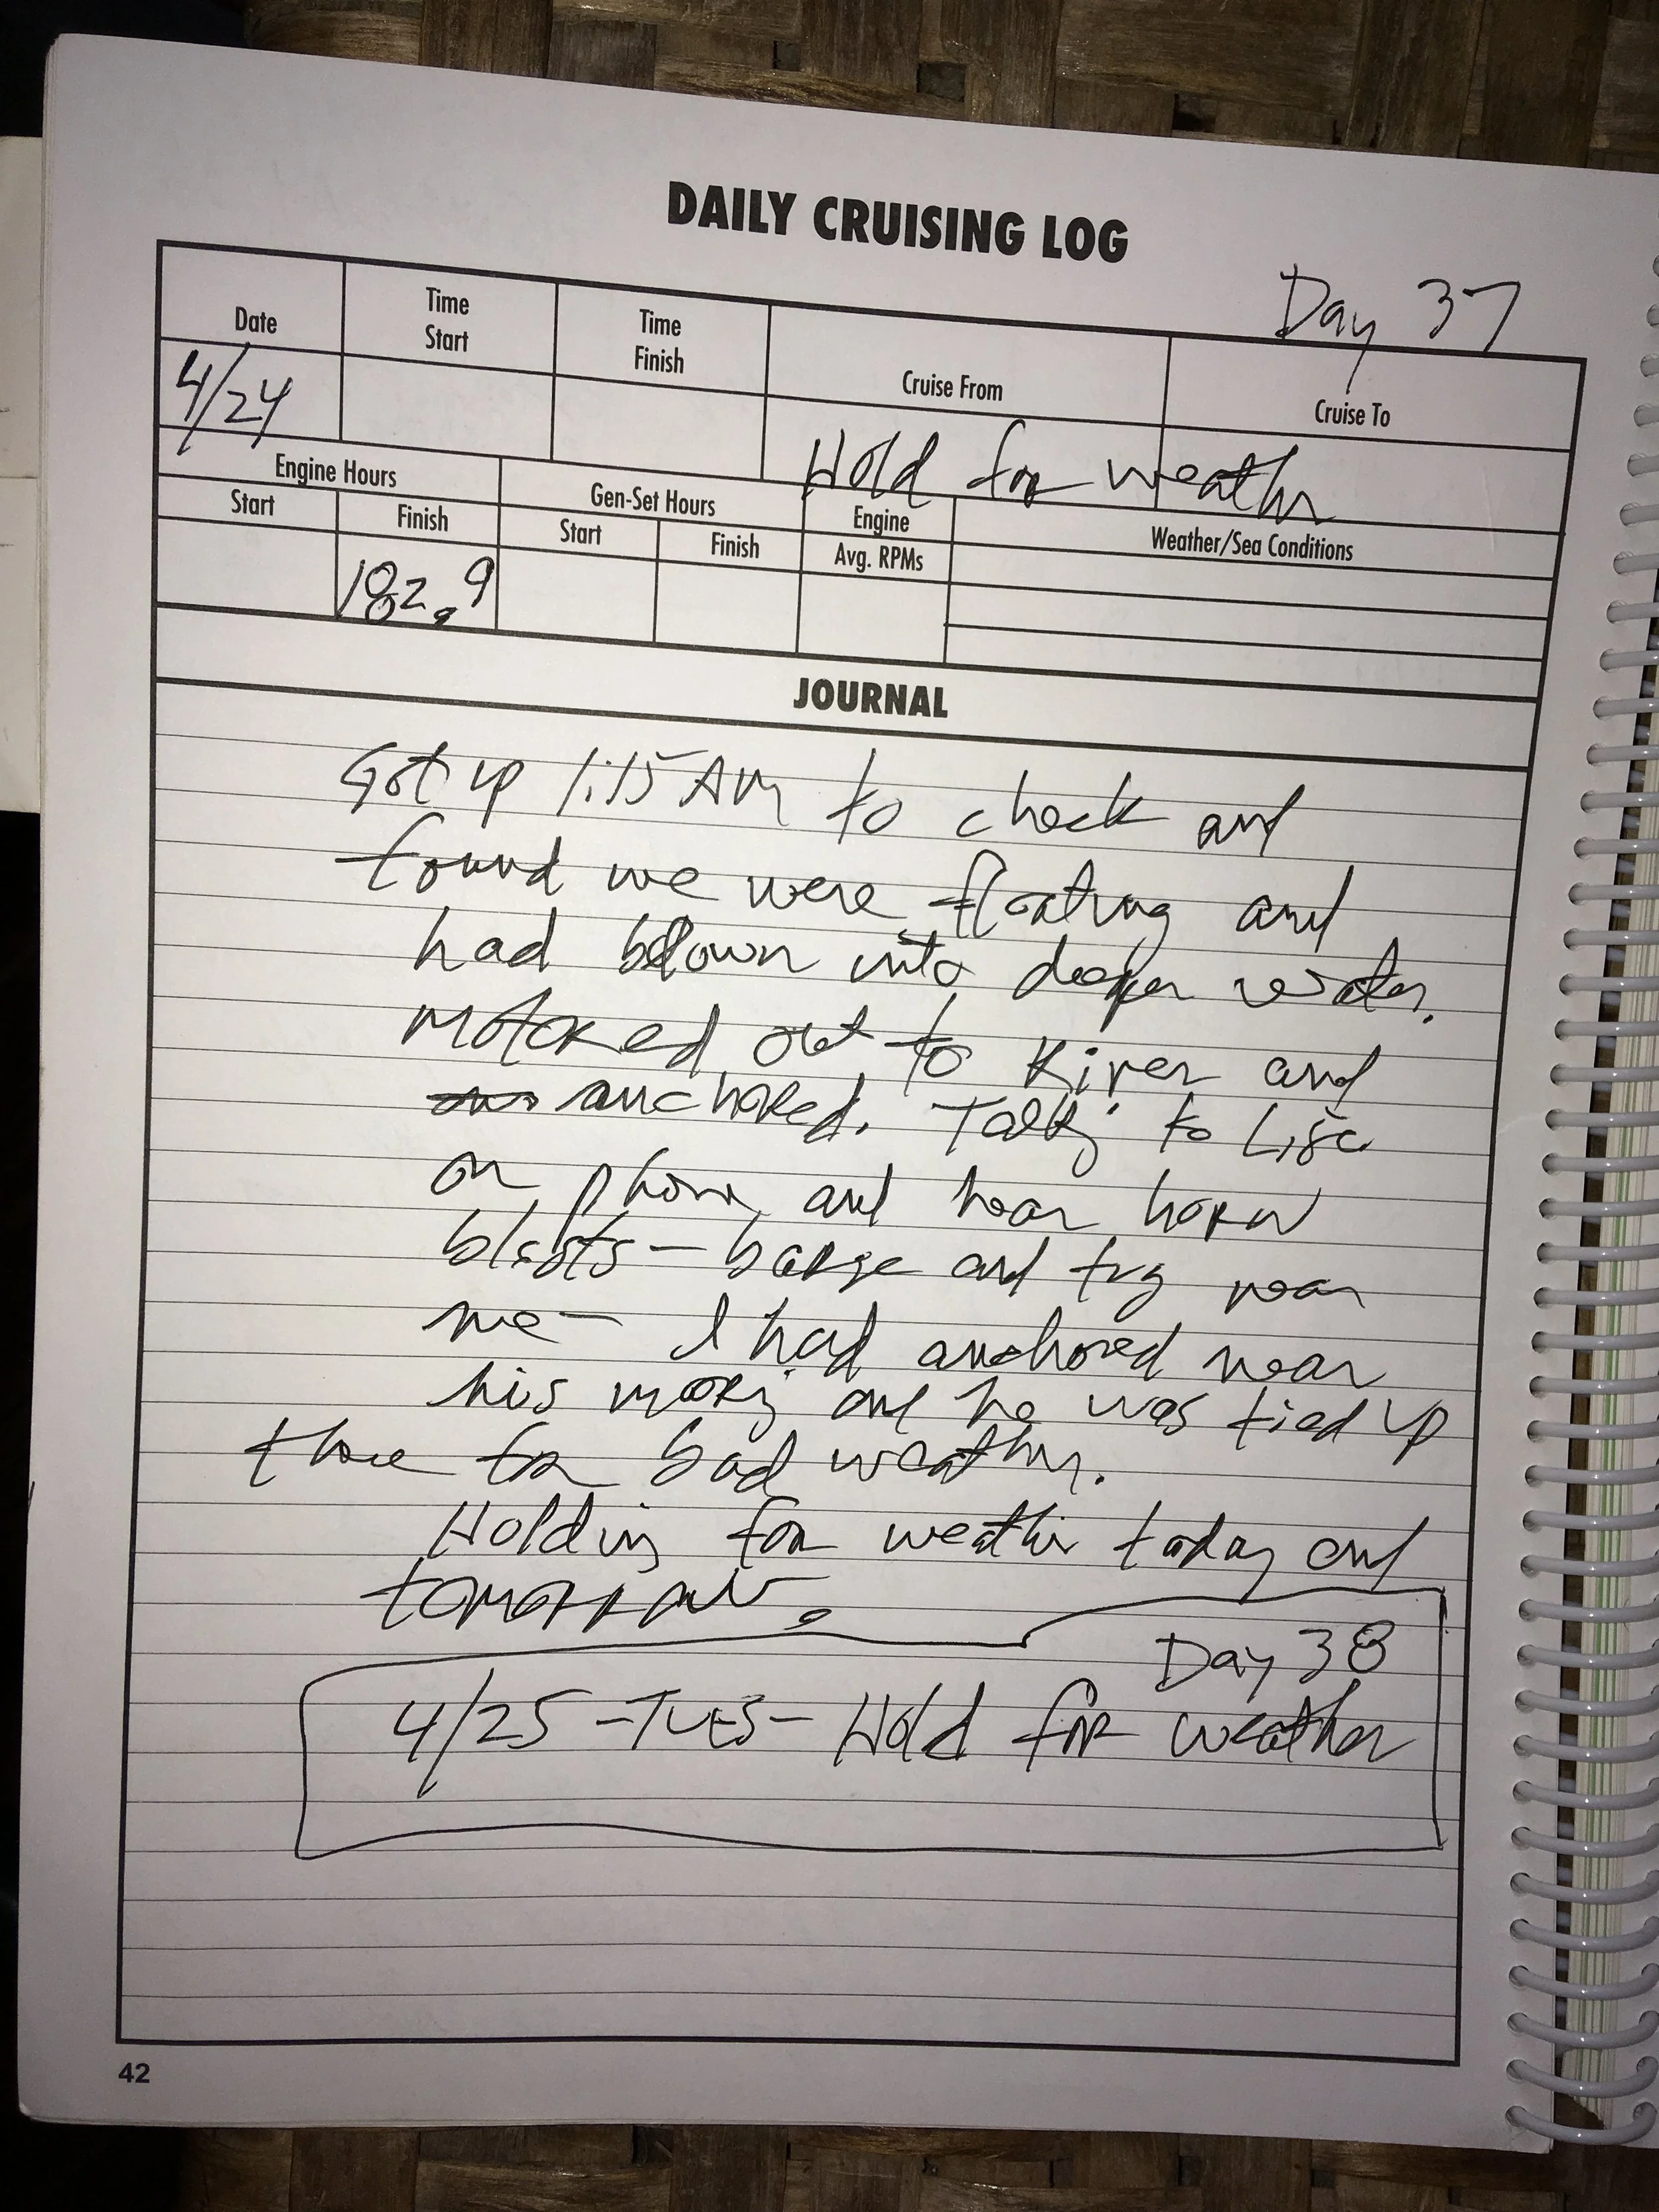 DAILY CRUISING LOG
Day 37
Date
Time Start
Time Finish
Cruise From
Cruise To
4/24
Hold for weather
Engine Hours
Gen-Set Hours
Engine Avg. RPMs
Weather/Sea Conditions
Start
Finish
Start
Finish
182.9
JOURNAL
Got up 1:15 AM to check and
found we were floating and
had blown into deeper water.
Motored out to River and
anchored. Talking to Lisa
on phone and hear horn
blasts – barge and tug near
me – I had anchored near
his mooring and he was tied up
there for bad weather.
Holding for weather today and
tomorrow.
Day 38
4/25 – TUES – Hold for weather
42